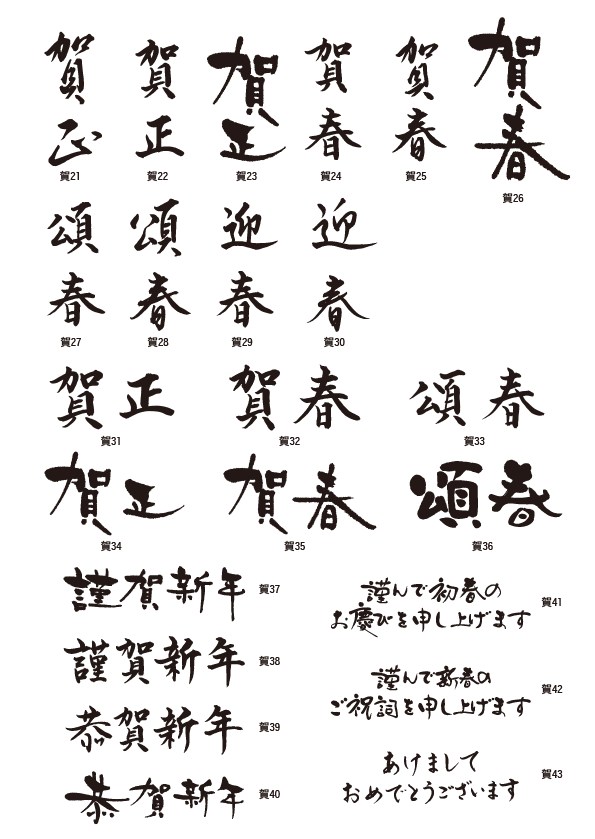 賀正
賀21
賀正
賀22
賀正
賀23
賀春
賀24
賀春
賀25
賀春
賀26
頌春
賀27
頌春
賀28
迎春
賀29
迎春
賀30
賀正
賀31
賀春
賀32
頌春
賀33
賀正
賀34
賀春
賀35
頌春
賀36
謹賀新年
賀37
謹賀新年
賀38
恭賀新年
賀39
恭賀新年
賀40
謹んで初春の
お慶びを申し上げます
賀41
謹んで新春の
ご祝詞を申し上げます
賀42
あけまして
おめでとうございます
賀43